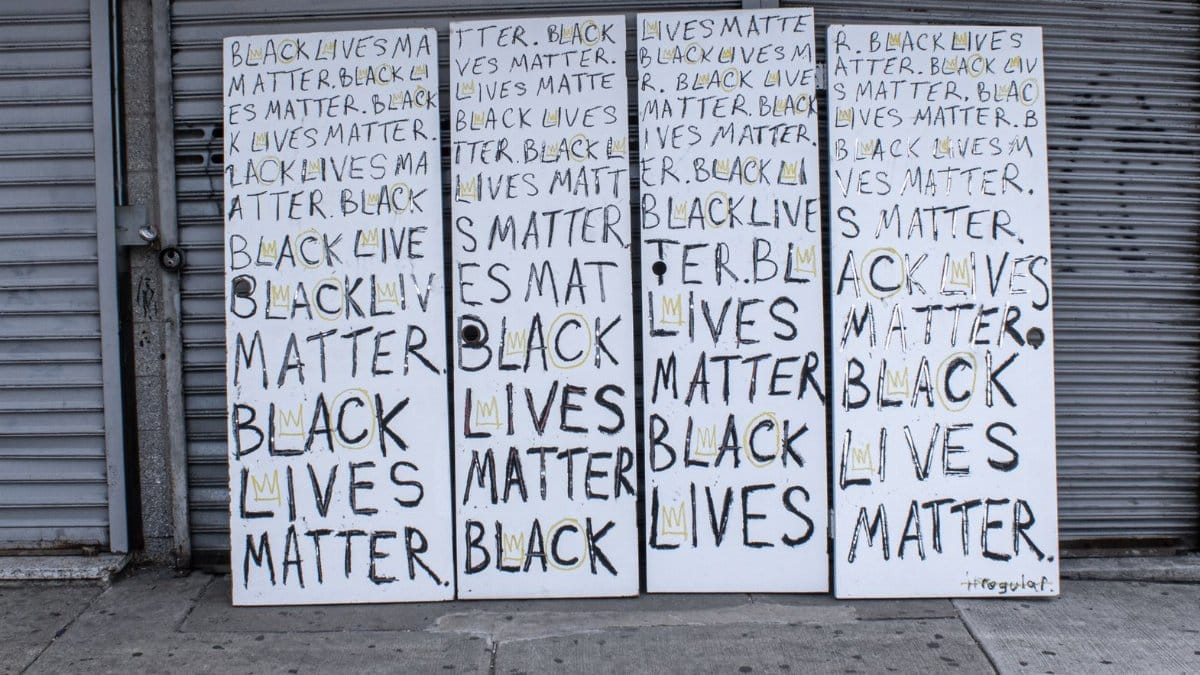 BLACK LIVES MA
MATTER.BLACK LI
ES MATTER. BLACK
K LIVES MATTER.
LACK LIVES MA
ATTER. BLACK
BLACK LIVE
BLACK LIV
MATTER.
BLACK
LIVES
MATTER.
TTER. BLACK
VES MATTER.
LIVES MATTE
BLACK LIVES
TTER. BLACK L
LIVES MATT
S MATTER
ES MAT
BLACK
LIVES
MATTER
BLACK
LIVES MATTE
BLACK LIVES M
R. BLACK LIVE
MATTER. BLACK
IVES MATTER.
ER. BLACK LI
BLACK LIVE
TER. BL
LIVES
MATTER
BLACK
LIVES
R. BLACK LIVES
ATTER. BLACK LIV
S MATTER. BLAC
LIVES MATTER. B
BLACK LIVES M
VES MATTER.
S MATTER.
ACK LIVES
MATTER.
BLACK
LIVES
MATTER.